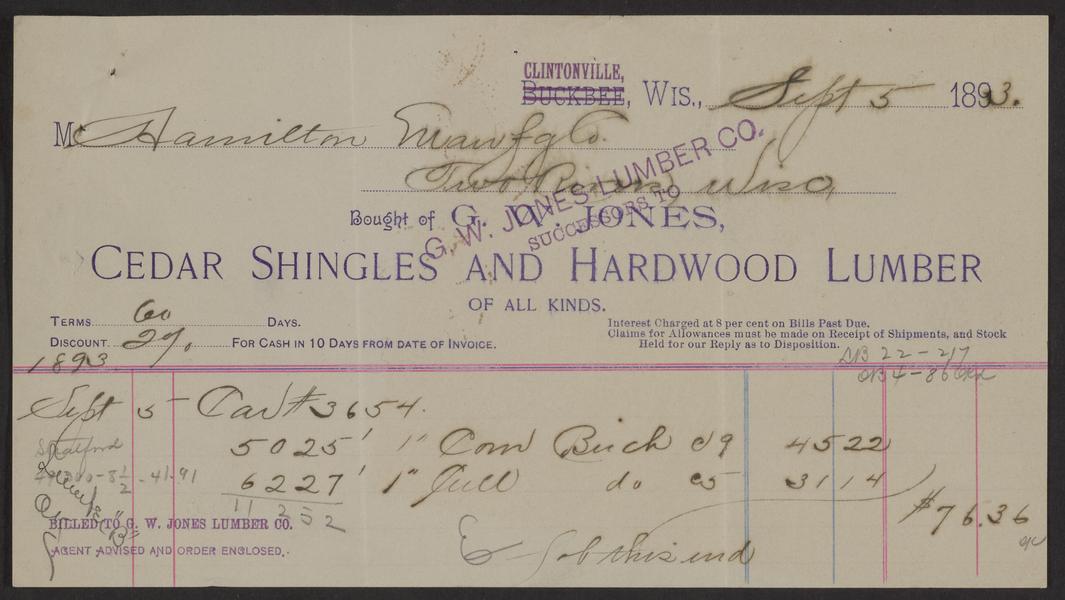 CLINTONVILLE,
BUCKBEE, WIS., Sept 5 1893.
M Hamilton Manfg Co.
Two Rivers, Wisc,
Bought of G. W. JONES,
G. W. JONES LUMBER CO.
SUCCESSORS TO
CEDAR SHINGLES AND HARDWOOD LUMBER
OF ALL KINDS.
TERMS 60 DAYS.
DISCOUNT 2% FOR CASH IN 10 DAYS FROM DATE OF INVOICE.
Interest Charged at 8 per cent on Bills Past Due.
Claims for Allowances must be made on Receipt of Shipments, and Stock
Held for our Reply as to Disposition.
1893
22-217
4-86
Sept 5 Car # 3654.
5025' 1" Com Birch @9 4522
Stratford
6227' 1" Cull do @5 3114
8½ - 41.91
11252
$76.36
BILLED TO G. W. JONES LUMBER CO.
AGENT ADVISED AND ORDER ENCLOSED.
fob this end